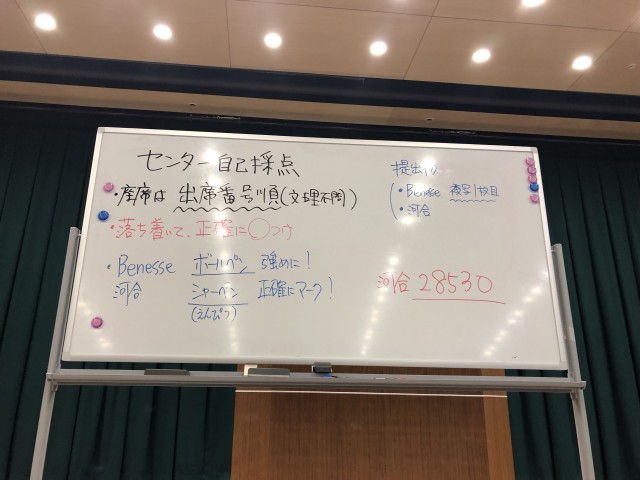 センター自己採点
・座席は 出席番号順(文理不問)
・落ち着いて、正確に○つけ
・Benesse ボールペン 強めに!
河合 シャーペン 正確にマーク!
(えんぴつ)
提出
・Benesse 複写1枚目
・河合
河合 28530